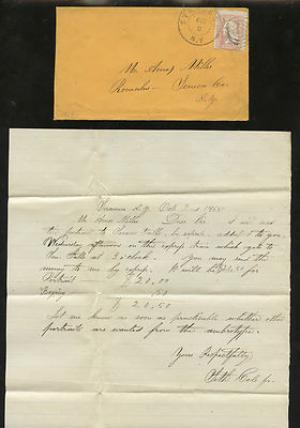 SY
N.Y.
Mr Amos Miller
Romulus - Seneca Co.
N.Y.
N.Y. Oct 2nd
Mr Amos Miller Dear Sir I
the portrait to Seneca Falls, by express to you
Wednesday afternoon on the express train which gets to
the Falls at 3 o'clock. You may send the
money to me by express. It will be for
Portrait $20.00
Boxing .50
$20.50
Let me know as soon as practicable whether other
portraits are wanted from the ambrotype.
Yours Respectfully
Cole Jr.